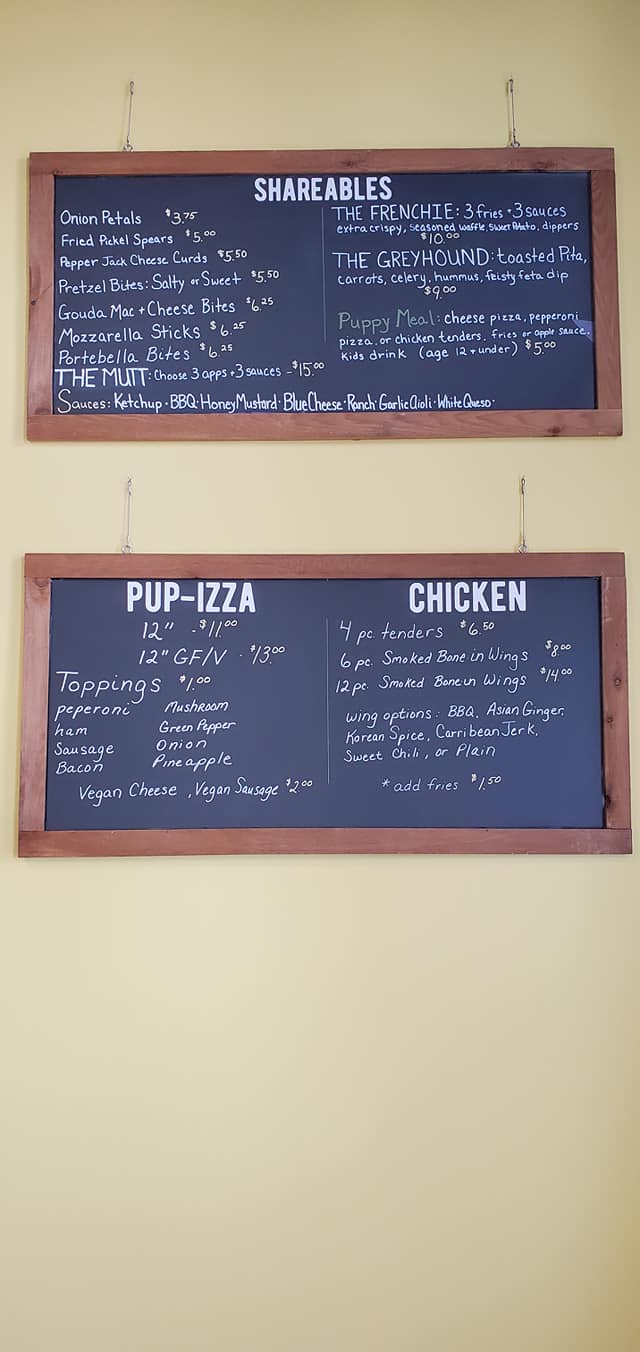 SHAREABLES
Onion Petals $3.75
Fried Pickel Spears $5.00
Pepper Jack Cheese Curds $5.50
Pretzel Bites: Salty or Sweet $5.50
Gouda Mac + Cheese Bites $6.25
Mozzarella Sticks $6.25
Portebella Bites $6.25
THE MUTT: Choose 3 apps + 3 sauces - $15.00
THE FRENCHIE: 3 fries + 3 sauces
extra crispy, seasoned waffle, sweet Potato, dippers
$10.00
THE GREYHOUND: toasted Pita,
carrots, celery, hummus, feisty feta dip
$9.00
Puppy Meal: cheese pizza, pepperoni
pizza, or chicken tenders, fries or apple sauce,
kids drink (age 12 + under) $5.00
Sauces: Ketchup · BBQ · Honey Mustard · Blue Cheese · Ranch · Garlic Aioli · White Queso ·
PUP-IZZA
12" - $11.00
12" GF/V - $13.00
Toppings $1.00
peperoni Mushroom
ham Green Pepper
Sausage Onion
Bacon Pineapple
Vegan Cheese, Vegan Sausage $2.00
CHICKEN
4 pc tenders $6.50
6 pc. Smoked Bone in Wings $8.00
12 pc. Smoked Bone in Wings $14.00
wing options: BBQ, Asian Ginger,
Korean Spice, Carribean Jerk,
Sweet Chili, or Plain
* add fries $1.50